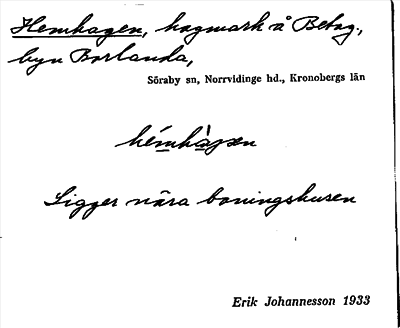 Hemhagen, hagmark å Betag,
byn Borlanda,
Söraby sn, Norrvidinge hd., Kronobergs län
hémhàgen
Ligger nära boningshusen
Erik Johannesson 1933